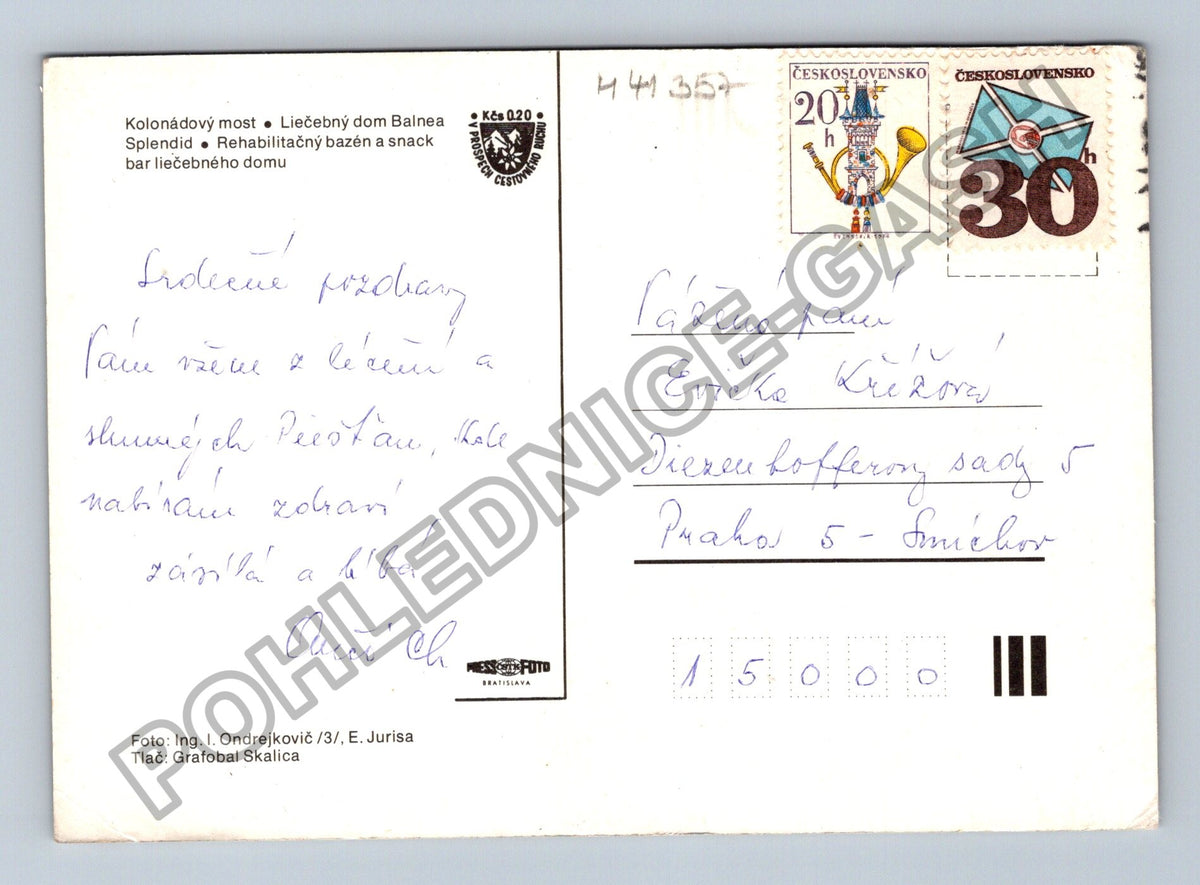 Kolonádový most • Liečebný dom Balnea
Splendid • Rehabilitačný bazén a snack
bar liečebného domu
• Kčs 0.20 •
V PROSPECH CESTOVNÉHO RUCHU
Srdečné pozdravy
Vám všem z léčení a
slunných Piešťan, kde
nabírám zdraví
zásílá a líbá
Ch
PRESSFOTO
BRATISLAVA
Foto: Ing. I. Ondrejkovič /3/, E. Jurisa
Tlač: Grafobal Skalica
441 357
ČESKOSLOVENSKO
20 h
ČESKOSLOVENSKO
30 h
Vážená paní
Evička Křížová
Diezenhofferovy sady 5
Praha 5 - Smíchov
1 5 0 0 0
POHLEDNICE-GASH